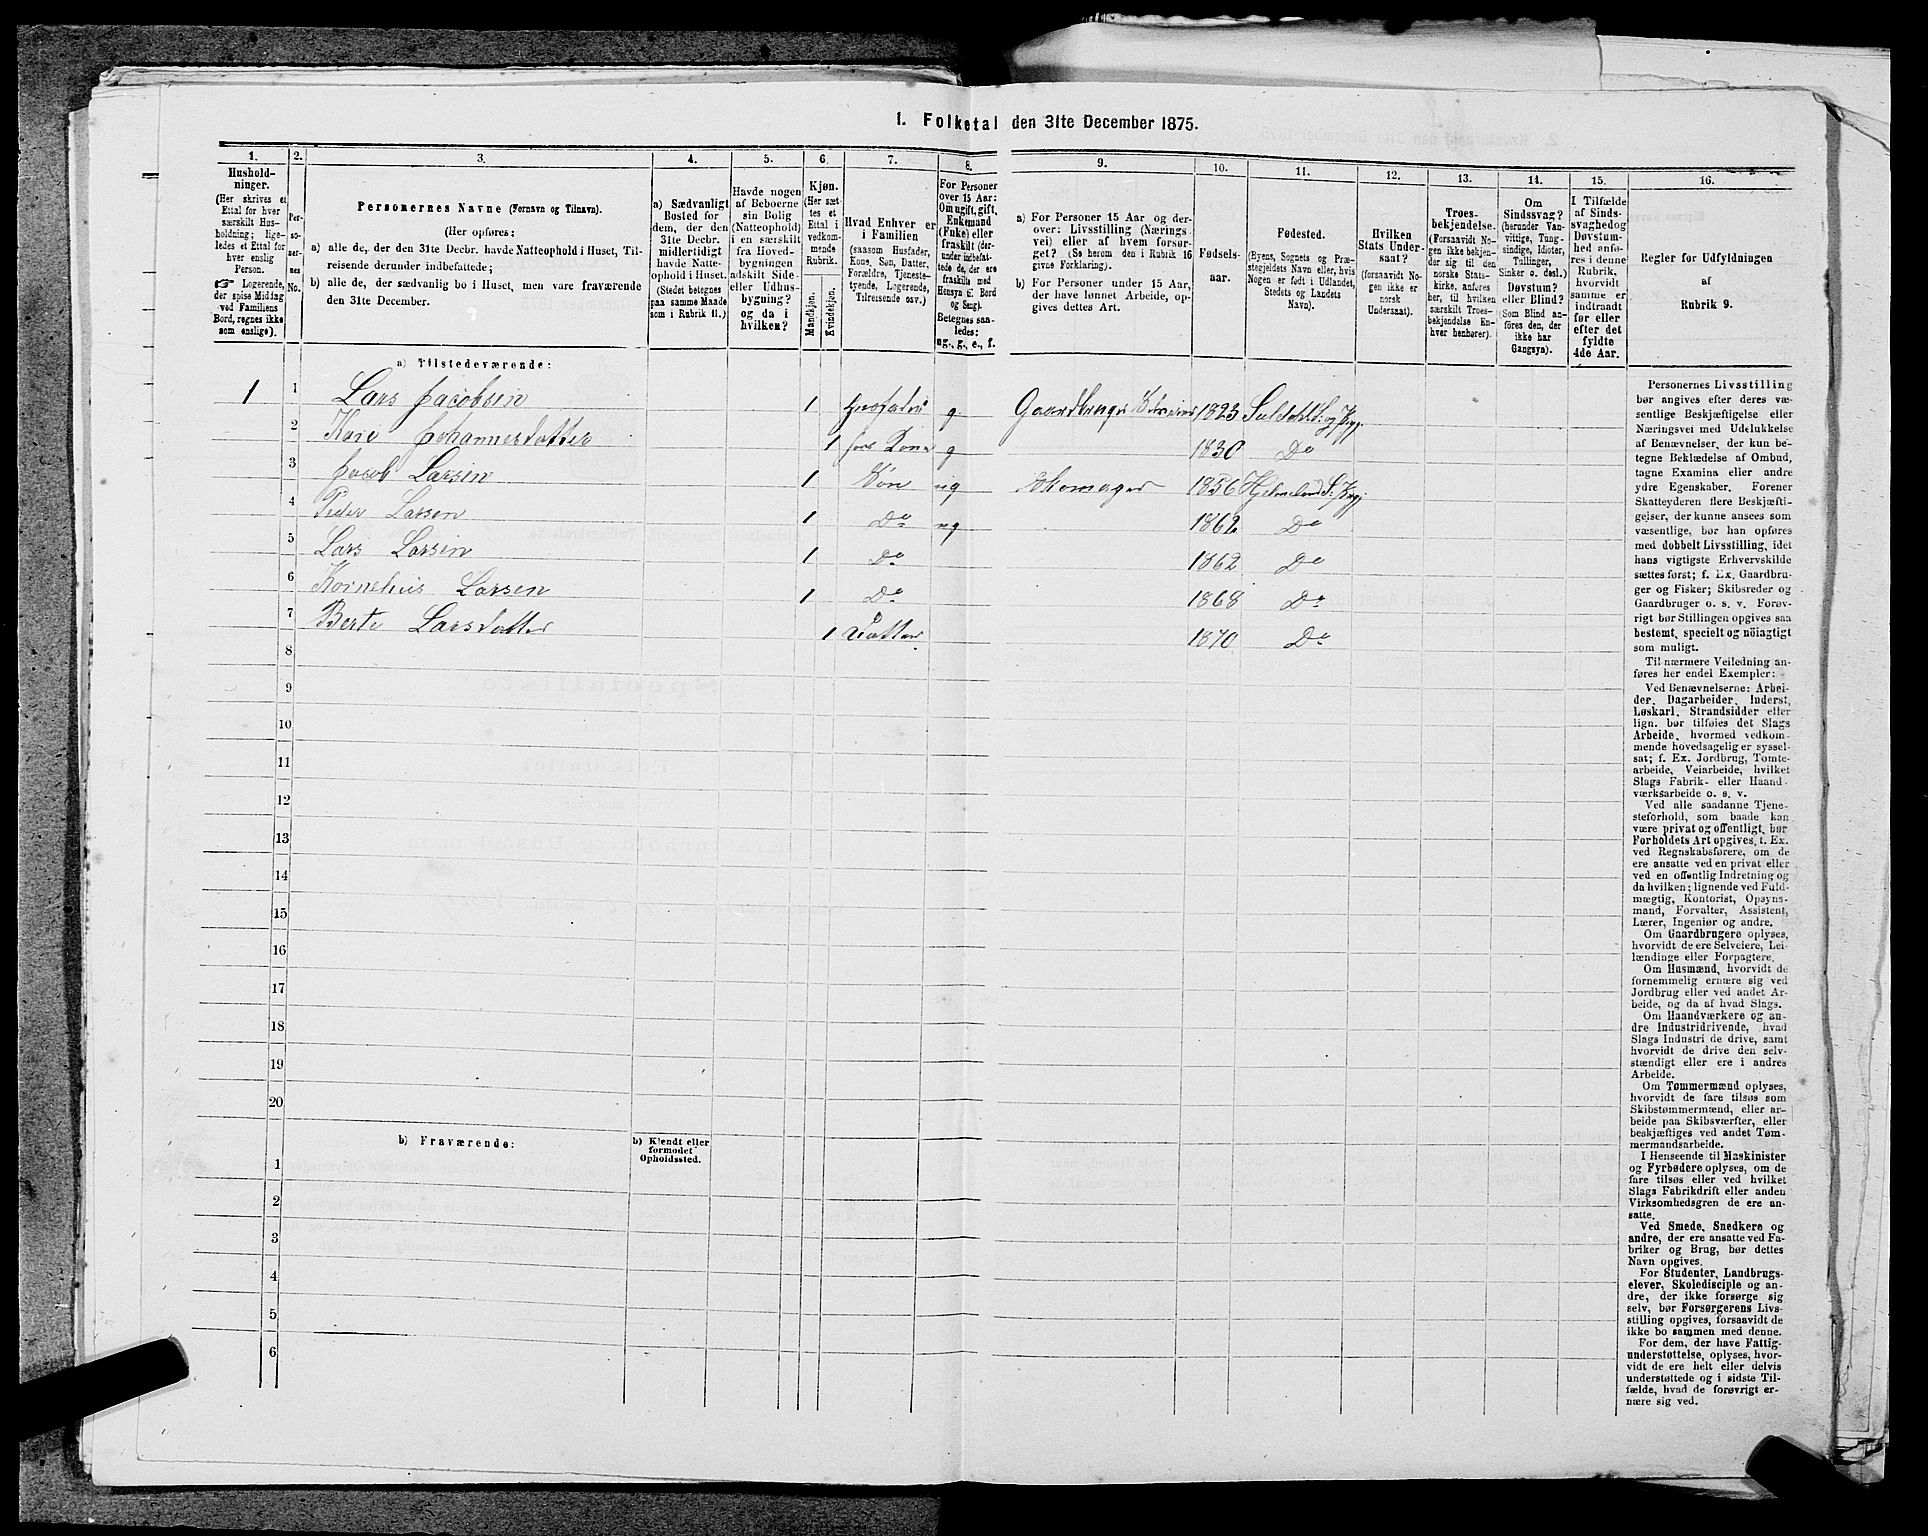 1. Folketal den 31te December 1875.
1. 2. 3. 4. 5. 6. 7. 8. 9. 10. 11. 12. 13. 14. 15. 16.
Hushold-
ninger.
(Her skrives et
Ettal for hver
særskilt Hus-
holdning; lige-
ledes et Ettal for
hver enslig
Person.
☞ Logerende,
der spise Middag
ved Familiens
Bord, regnes ikke
som enslige).
Per-
so-
ner-
nes
No.
Personernes Navne (Fornavn og Tilnavn).
(Her opføres:
a) alle de, der den 31te Decbr. havde Natteophold i Huset, Til-
reisende derunder indbefattede;
b) alle de, der sædvanlig bo i Huset, men vare fraværende
den 31te December.
a) Sædvanligt
Bosted for
dem, der den
31te Decbr.
midlertidigt
havde Natte-
ophold i Huset.
(Stedet betegnes
paa samme Maade
som i Rubrik 11.)
Havde nogen
af Beboerne
sin Bolig
(Natteophold)
i en særskilt
fra Hoved-
bygningen
adskilt Side-
eller Udhus-
bygning?
og da i
hvilken?
Kjøn.
(Her sæt-
tes et
Ettal i
vedkom-
mende
Rubrik.
Mandkjøn.
Kvindekjøn.
Hvad Enhver er
i Familien
(saasom Husfader,
Kone, Søn, Datter,
Forældre, Tjeneste-
tyende, Logerende,
Tilreisende osv.)
For Personer
over 15 Aar:
Om ugift, gift,
Enkemand
(Enke) eller
fraskilt (der-
under indbefat-
tede de, der ere
fraskilte med
Hensyn til Bord
og Seng).
Betegnes saa-
ledes:
ug., g., e., f.
a) For Personer 15 Aar og der-
over: Livsstilling (Nærings-
vei) eller af hvem forsør-
get? (Se herom den i Rubrik 16
givne Forklaring).
b) For Personer under 15 Aar,
der have lønnet Arbeide, op-
gives dettes Art.
Fødsels-
aar.
Fødested.
(Byens, Sognets og Præ-
stegjeldets Navn eller, hvis
Nogen er født i Udlandet,
Stedets og Landets
Navn).
Hvilken
Stats Under-
saat?
(forsaavidt No-
gen ikke er
norsk
Undersaat).
Troes-
bekjendelse.
(Forsaavidt No-
gen ikke bekjen-
der sig til den
norske Stats-
kirke, anføres
her, til hvilken
særskilt Troes-
bekjendelse En-
hver henhører).
Om
Sindssvag?
(herunder Van-
vittige, Tung-
sindige, Idioter,
Tullinger,
Sinker o. desl.)
Døvstum?
eller Blind?
(Som Blind an-
føres den, der
ikke har
Gangsyn).
I Tilfælde
af Sinds-
svaghed og
Døvstum-
hed anfø-
res i denne
Rubrik,
hvorvidt
samme er
indtraadt
før eller
efter det
fyldte
4de Aar.
Regler for Udfyldningen
af
Rubrik 9.
a) Tilstedeværende:
1 1 Lars Jacobsen 1 Husfader g. Gaardbruger 1823 Suldahl S: og Pgj.
2 Kari Johannesdatter 1 hans Kone g 1830 Do
3 Jacob Larsen 1 Søn ug Skomager 1856 Hjelmeland S: Pgj:
4 Peder Larsen 1 Do ug 1862 Do
5 Lars Larsen 1 Do 1862 Do
6 Kornelius Larsen 1 Do 1868 Do
7 Berte Larsdatter 1 Datter 1870 Do
8
9
10
11
12
13
14
15
16
17
18
19
20
b) Fraværende:
b) Kjendt eller
formodet
Opholdssted.
1
2
3
4
5
6
Personernes Livsstilling
bør angives efter deres væ-
sentlige Beskjæftigelse eller
Næringsvei med Udelukkelse
af Benævnelser, der kun be-
tegne Beklædelse af Ombud,
tagne Examina eller andre
ydre Egenskaber. Forener
Skatteyderen flere Beskjæfti-
gelser, der kunne ansees som
væsentlige, bør han opføres
med dobbelt Livsstilling, idet
hans vigtigste Erhvervskilde
sættes først; f. Ex. Gaardbru-
ger og Fisker; Skibsreder og
Gaardbruger o. s. v. Forøv-
rigt bør Stillingen opgives saa
bestemt, specielt og nöiagtigt
som muligt.
Til nærmere Veiledning an-
føres her endel Exempler:
Ved Benævnelserne: Arbei-
der, Dagarbeider, Inderst,
Løskarl, Strandsidder eller
lign. bør tilføies det Slags
Arbeide, hvormed vedkom-
mende hovedsagelig er syssel-
sat; f. Ex. Jordbrug, Tomte-
arbeide, Veiarbeide, hvilket
Slags Fabrik- eller Haand-
værksarbeide o. s. v.
Ved alle saadanne Tjene-
steforhold, som baade kan
være privat og offentligt, bør
Forholdets Art opgives, t. Ex.
ved Regnskabsførere, om de
ere ansatte ved en privat eller
ved en offentlig Indretning og
da hvilken; lignende ved Fuld-
mægtig, Kontorist, Opsyns-
mand, Forvalter, Assistent,
Lærer, Ingeniør og andre.
Om Gaardbrugere oplyses,
hvorvidt de ere Selveiere, Lei-
lændinge eller Forpagtere.
Om Husmænd, hvorvidt de
fornemmelig ernære sig ved
Jordbrug eller ved andet Ar-
beide, og da af hvad Slags.
Om Haandværkere og an-
dre Industridrivende, hvad
Slags Industri de drive, samt
hvorvidt de drive den selv-
stændigt eller ere i andres
Arbeide.
Om Tømmermænd oplyses,
hvorvidt de fare tilsøs som
Skibstømmermænd, eller ar-
beide paa Skibsværfter, eller
beskjæftiges ved andet Tøm-
mermandsarbeide.
I Henseende til Maskinister
og Fyrbødere oplyses, om de
fare tilsøs eller ved hvilket
Slags Fabrikdrift eller anden
Virksomhedsgren de ere an-
satte.
Ved Smede, Snedkere og
andre, der ere ansatte ved Fa-
briker og Brug, bør dettes
Navn opgives.
For Studenter, Landbrugs-
elever, Skoledisciple og an-
dre, der ikke forsørge sig
selv, bør Forsørgerens Livs-
stilling opgives, forsaavidt de
ikke bo sammen med denne.
For dem, der have Fattig-
understøttelse, oplyses, hvor-
vidt de ere helt eller delvis
understøttede og i sidste Til-
fælde, hvad de forøvrigt er-
nære sig ved.